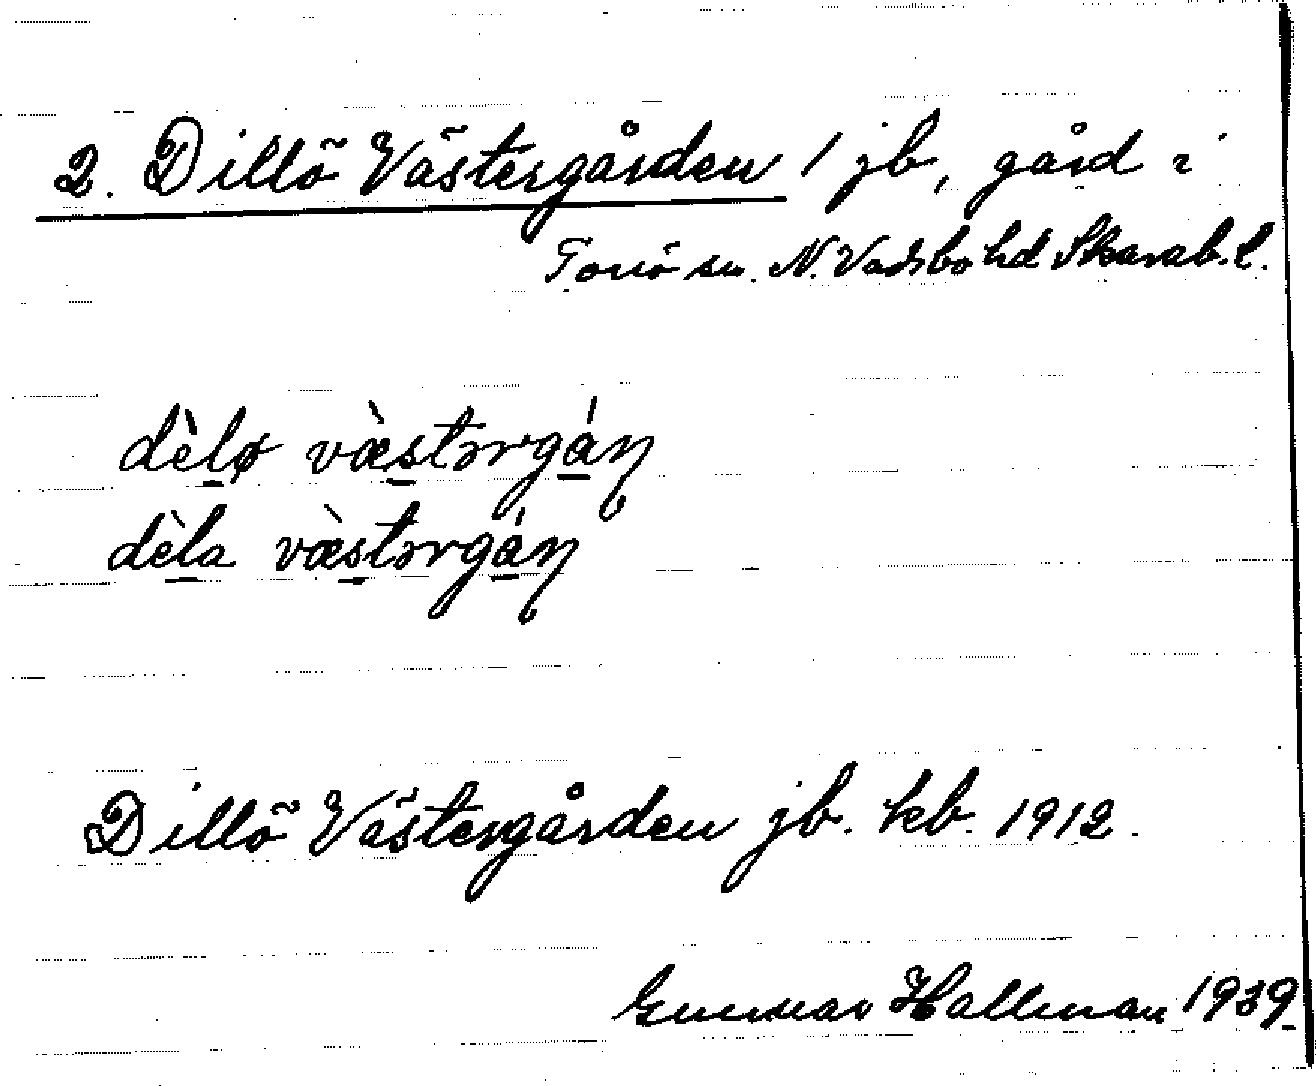 2. Dillö Västergården 1 jb, gård i
Torsö sn. N. Vadsbo hd Skarab. l.
dèlø væ̀stərgán
dèla væ̀stərgán
Dillö Västergården jb. kb. 1912.
Gunnar Hallman 1939